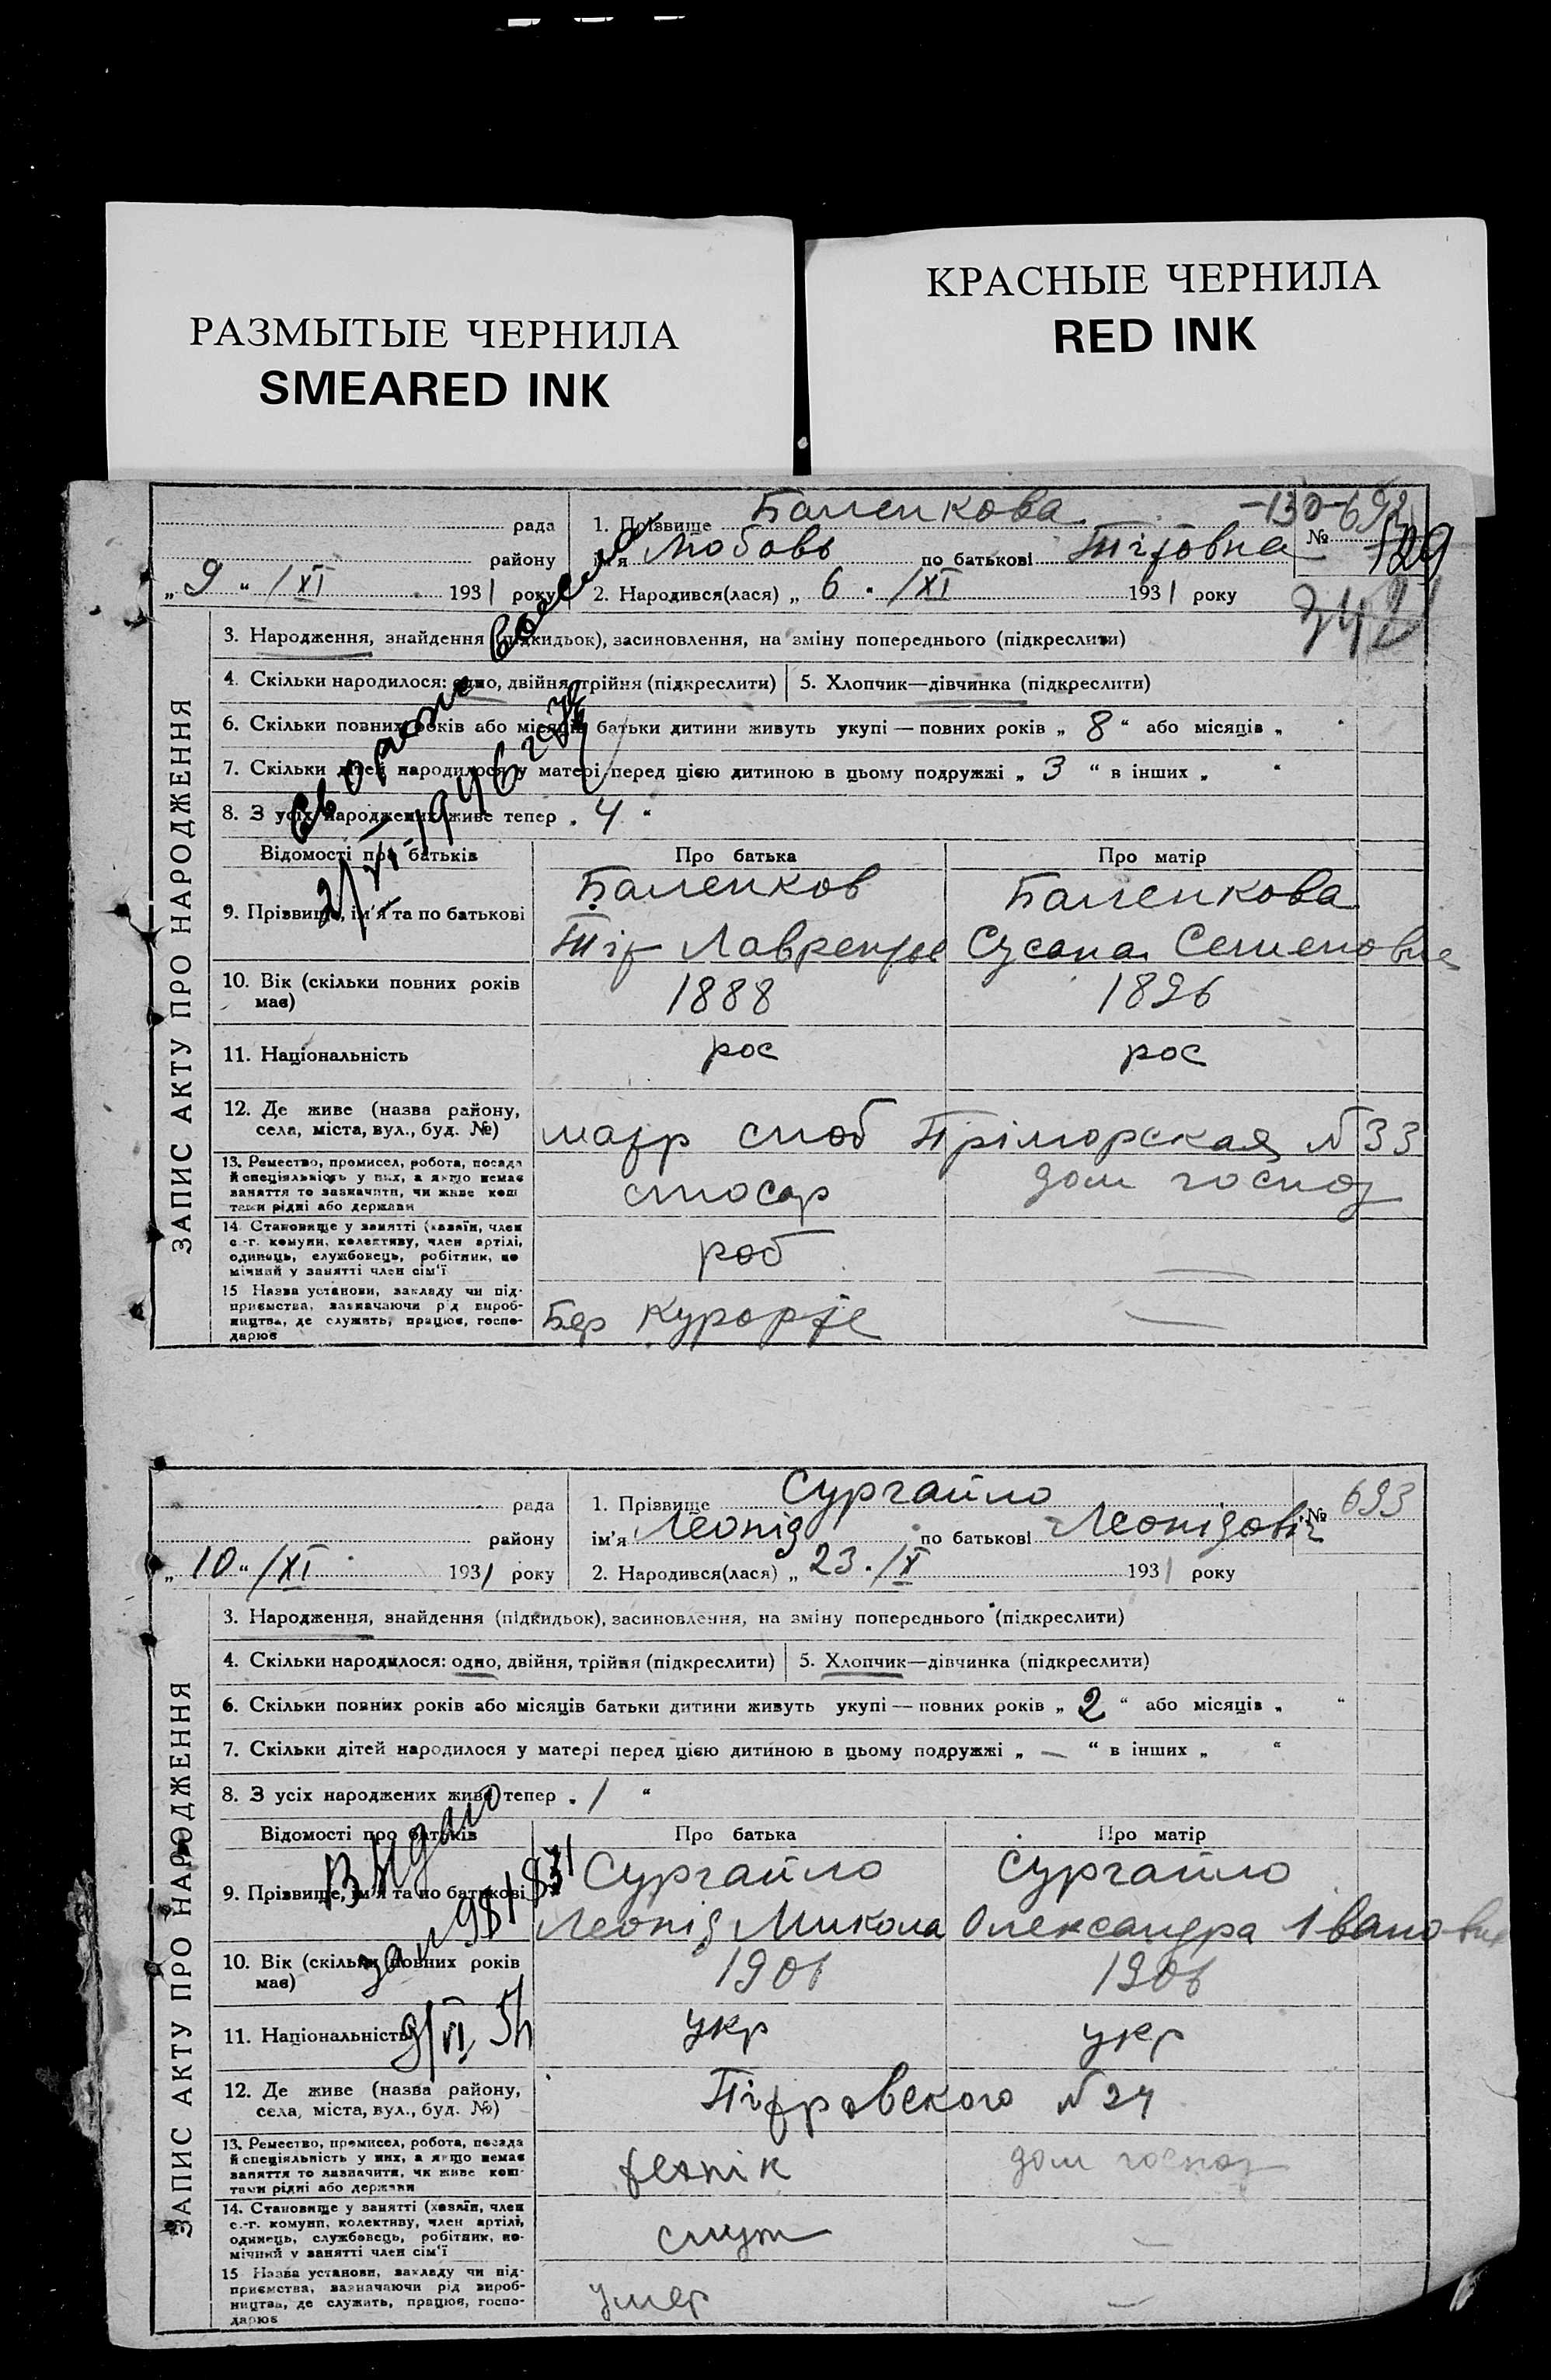 РАЗМЫТЫЕ ЧЕРНИЛА
SMEARED INK
КРАСНЫЕ ЧЕРНИЛА
RED INK
ЗАПИС АКТУ ПРО НАРОДЖЕННЯ
рада
району
„ 9 “ /XI 1931 року
1. Прізвище Баленкова
ім'я Любовь по батькові Тітовна
№ 129
-130- 692
2. Народився(лася) „ 6 “ /XI 1931 року
342
3. Народження, знайдення (підкидьок), засиновлення, на зміну попереднього (підкреслити)
4. Скільки народилося: одно, двійня, трійня (підкреслити) 5. Хлопчик—дівчинка (підкреслити)
6. Скільки повних років або місяців батьки дитини живуть укупі — повних років „ 8 “ або місяців „ “
7. Скільки дітей народилося у матері перед цією дитиною в цьому подружжі „ 3 “ в інших „ “
8. З усіх народжених живе тепер „ 4 “
Відомості про батьків Про батька Про матір
9. Прізвище, ім'я та по батькові
Баленков Баленкова
Тіт Лаврентье Сусана Семеновна
10. Вік (скільки повних років має) 1888 1896
11. Національність рос рос
12. Де живе (назва району, села, міста, вул., буд. №) Пріморская N 33
13. Ремество, промисел, робота, посада й спеціяльність у них, а якщо немає заняття то зазначити, чи живе коштами рідні або держави
слюсар дом господ
14. Становище у занятті (хазяїн, член с.-г. комуни, колективу, член артілі, одинець, службовець, робітник, помічний у занятті член сім'ї
роб —
15 Назва установи, закладу чи підприємства, зазначаючи рід виробництва, де служить, працює, господарює
Бер Курорте —
ЗАПИС АКТУ ПРО НАРОДЖЕННЯ
рада
району
„ 10 “ /XI 1931 року
1. Прізвище Сургайло
ім'я Леонід по батькові Леонідовіч
№ 693
2. Народився(лася) „ 23 “ /X 1931 року
3. Народження, знайдення (підкидьок), засиновлення, на зміну попереднього (підкреслити)
4. Скільки народилося: одно, двійня, трійня (підкреслити) 5. Хлопчик—дівчинка (підкреслити)
6. Скільки повних років або місяців батьки дитини живуть укупі — повних років „ 2 “ або місяців „ “
7. Скільки дітей народилося у матері перед цією дитиною в цьому подружжі „ — “ в інших „ “
8. З усіх народжених живе тепер „ 1 “
Відомості про батьків Про батька Про матір
Видано
9. Прізвище, ім'я та по батькові
Сургайло Сургайло
Леонід Микола Олександра Івановна
10. Вік (скільки повних років має) 1906 1906
11. Національність укр укр
12. Де живе (назва району, села, міста, вул., буд. №) N 24
13. Ремество, промисел, робота, посада й спеціяльність у них, а якщо немає заняття то зазначити, чи живе коштами рідні або держави
технік дом господ
14. Становище у занятті (хазяїн, член с.-г. комуни, колективу, член артілі, одинець, службовець, робітник, помічний у занятті член сім'ї
служ —
15 Назва установи, закладу чи підприємства, зазначаючи рід виробництва, де служить, працює, господарює
умер —